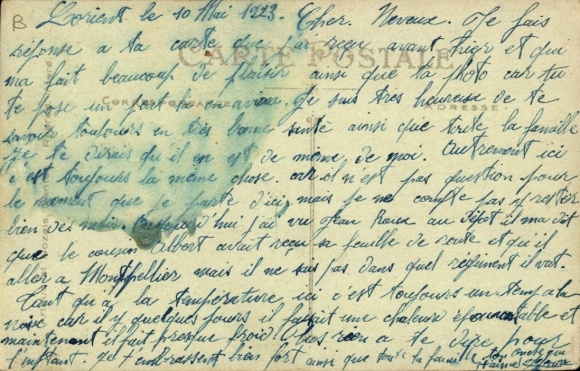 B
Lorient le 10 Mai 1923. Cher Neveux. Je fais
réponse a ta carte que j'ai reçu avant hier et qui
CARTE POSTALE
ma fait beaucoup de plaisir ainsi que ta photo car tu
te pose un port
Je suis très heureuse de te
savoir toujours en très bonne santé ainsi que toute la famille
je te dirais qu'il en est de même de moi. Autrement ici
c'est toujours la même chose car il n'est pas question pour
le moment que je parte d'ici mais je ne compte pas y rester
bien des mois. Aujourd'hui j'ai vu Jean Roux au Dépot il ma dit
que le cousin Albert avait reçu sa feuille de route et qu'il
aller a Montpellier mais il ne sais pas dans quel régiment il vat.
Tant qu'a la température ici c'est toujours un temp a la
car il y quelques jours il faisait une chaleur épouvantable et
maintenant il fait presque froid. Plus rien a te dire pour
l'instant. Je t'embrassent bien fort ainsi que toute la famille ton oncle qui
t'aime